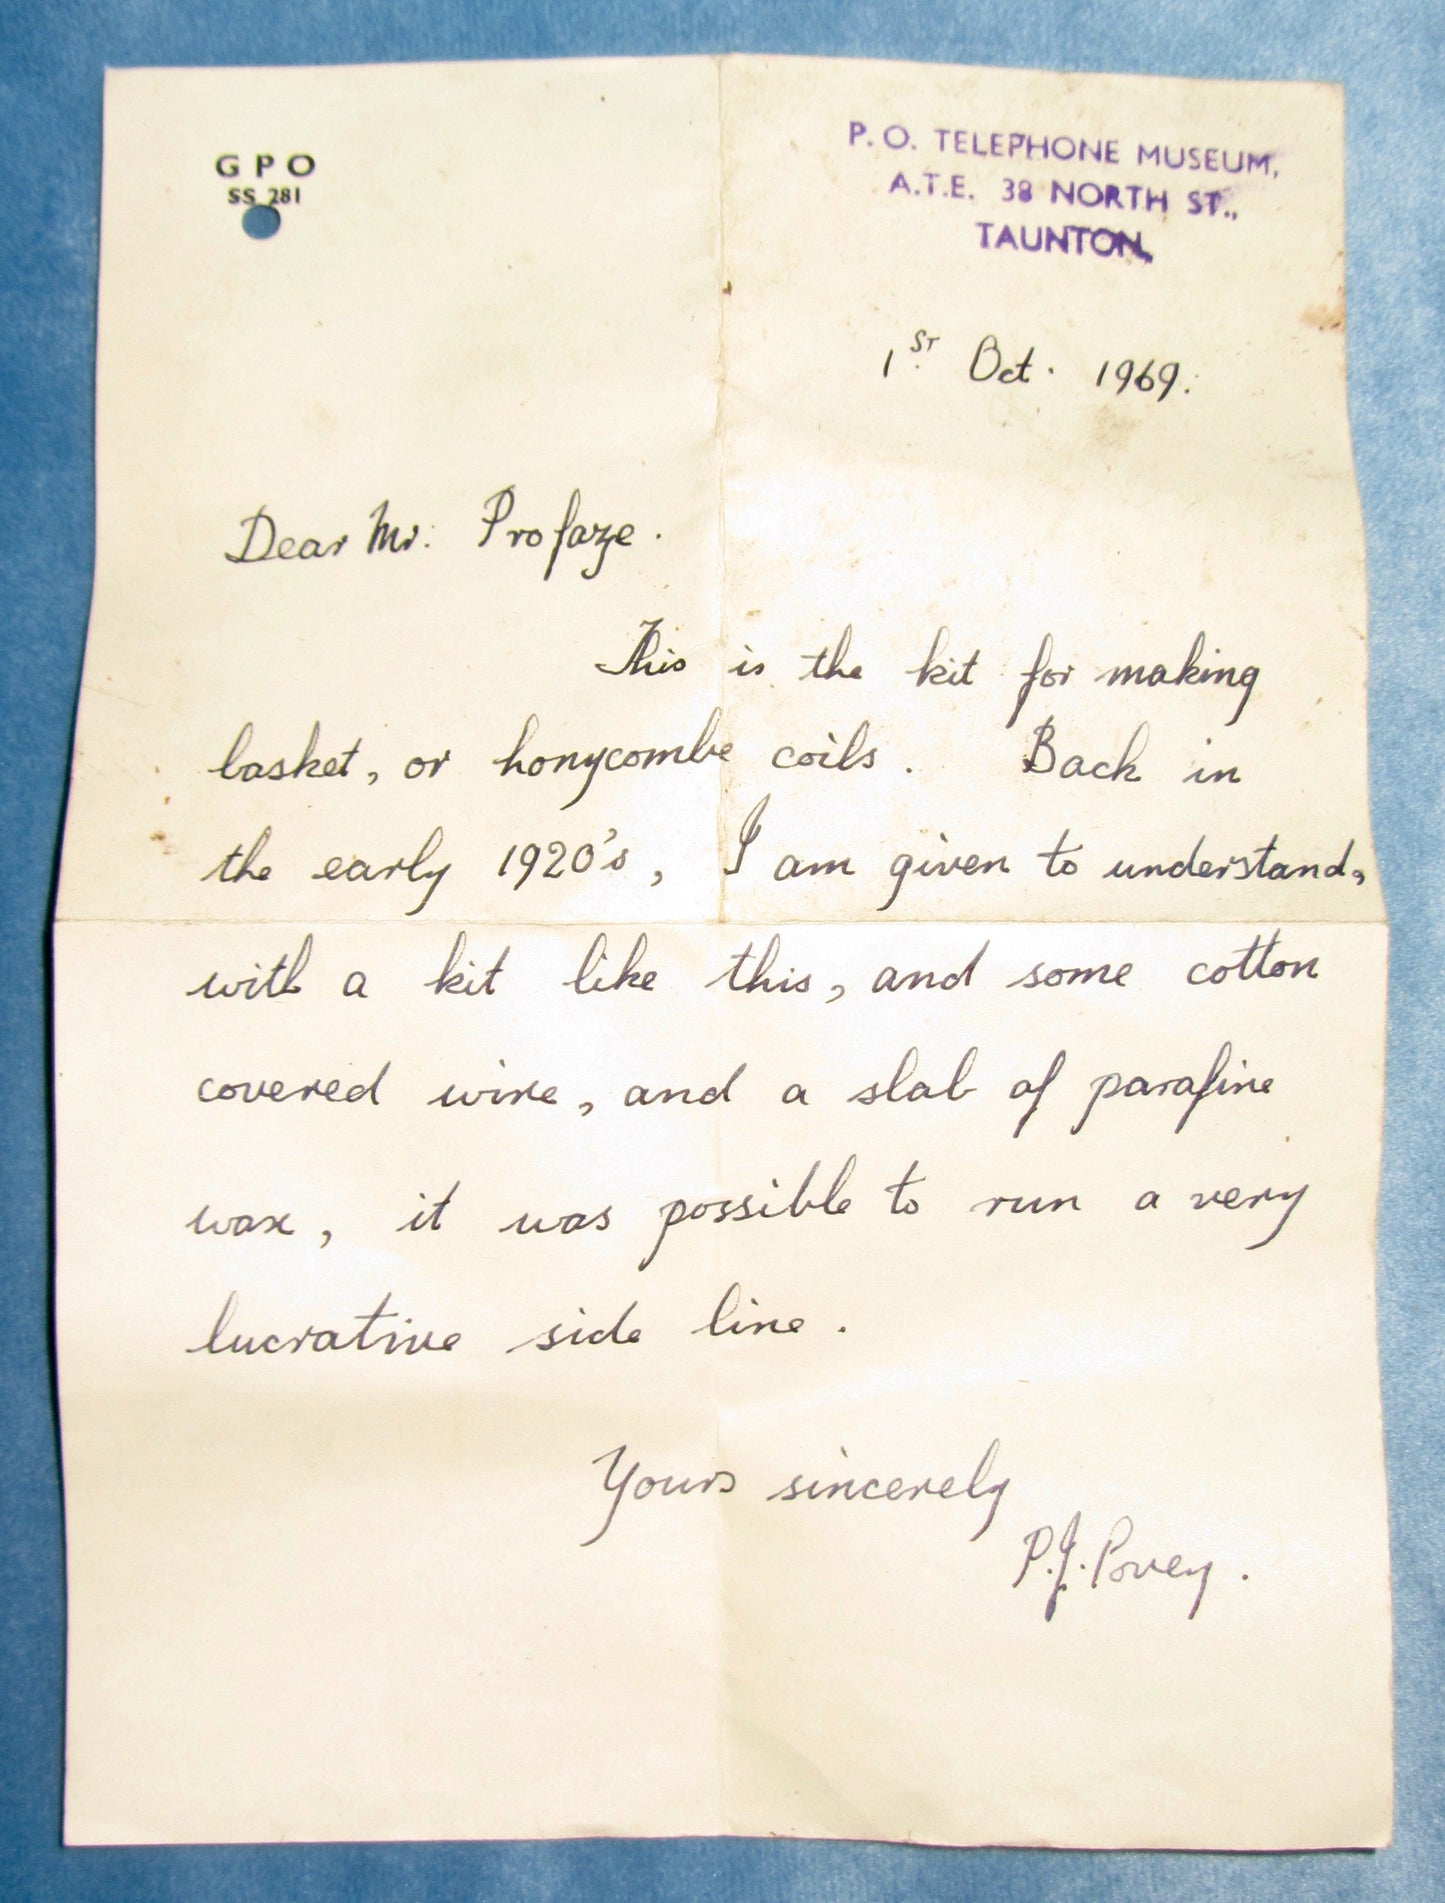 GPO
SS 281
P. O. TELEPHONE MUSEUM,
A.T.E. 38 NORTH ST.,
TAUNTON,
1ST Oct. 1969.
Dear Mr. Profaze.
This is the kit for making
basket, or honycombe coils. Back in
the early 1920's, I am given to understand,
with a kit like this, and some cotton
covered wire, and a slab of parafine
wax, it was possible to run a very
lucrative side line.
Yours sincerely
P.J. Povey.